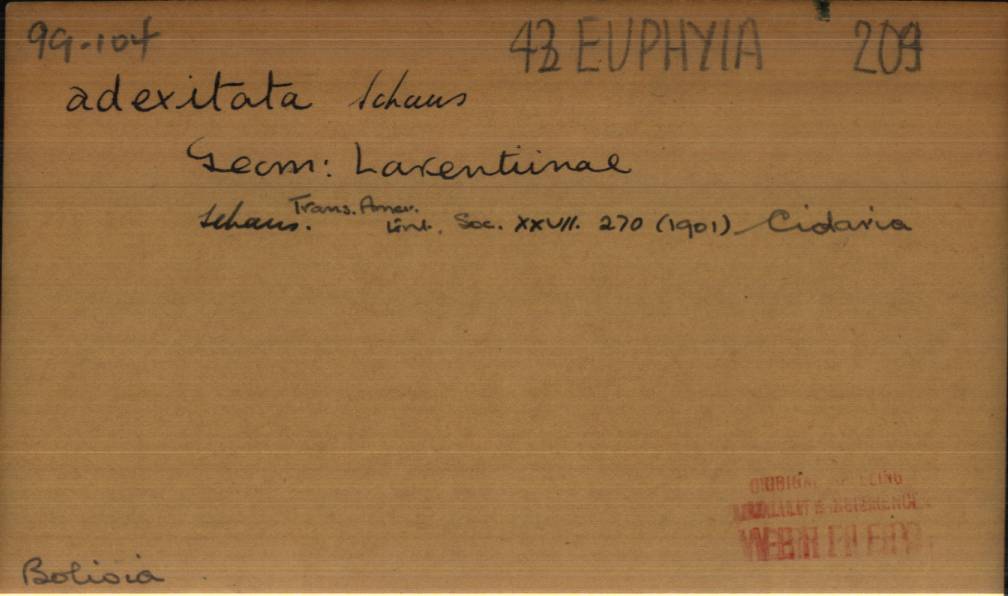 99-104 43 EUPHYIA 209
adexitata Schaus
Geom: Larentiinae
Schaus. Trans. Amer. Ent. Soc. XXVII. 270 (1901) Cidaria
ORIGINAL SPELLING
AVAILABILITY & REFERENCE
VERIFIED
Bolivia